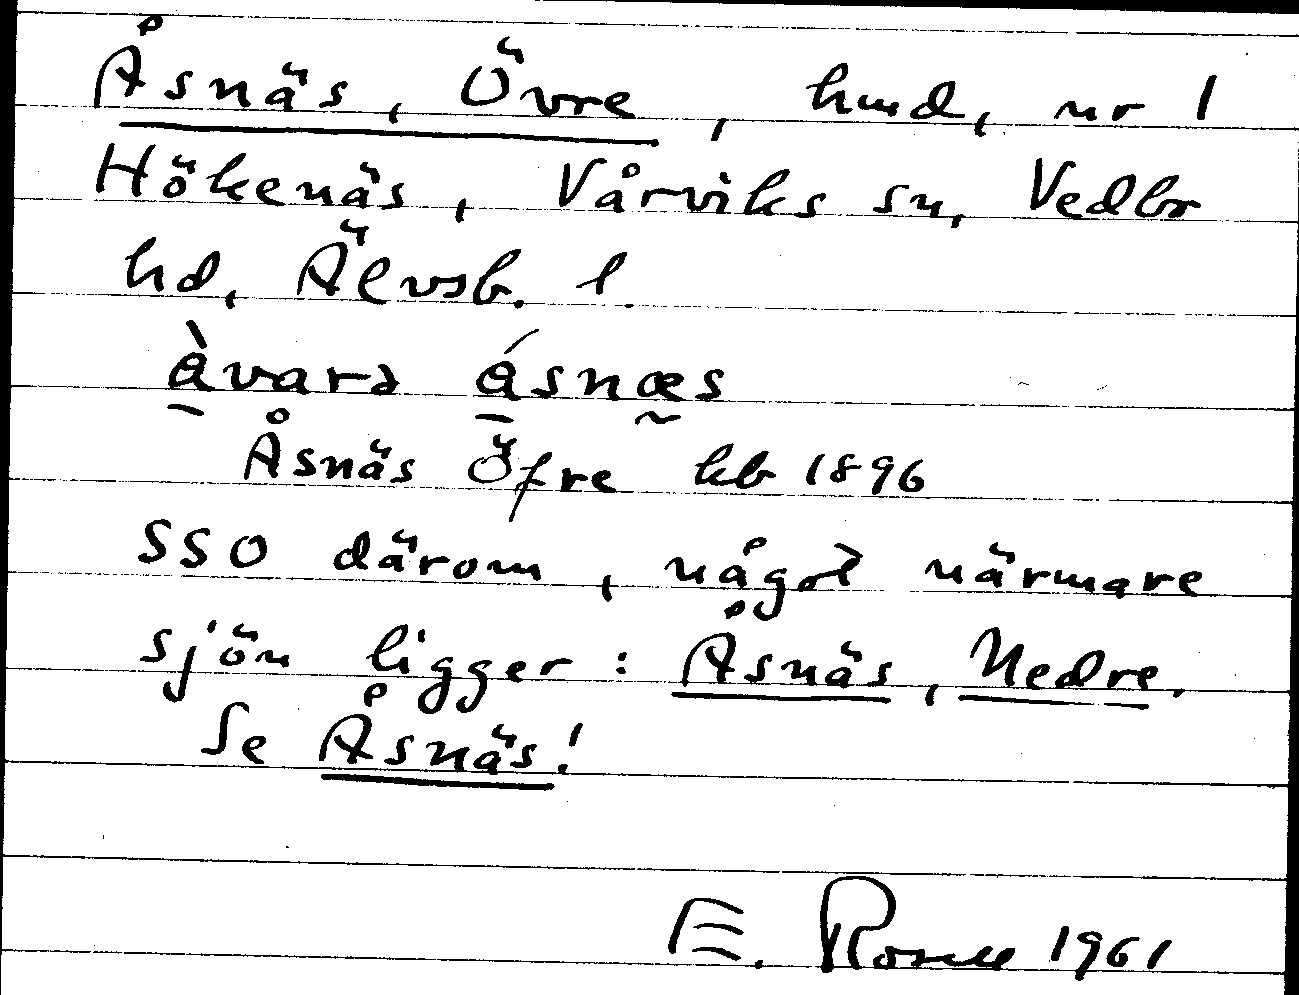 Åsnäs, Övre, hmd, nr 1
Hökenäs, Vårviks sn, Vedbo
hd, Älvsb. l.
à̠varə á̠snæ̰s
Åsnäs Öfre kb 1896
SSO därom, något närmare
sjön ligger: Åsnäs, Nedre.
Se Åsnäs!
E. Rosell 1961